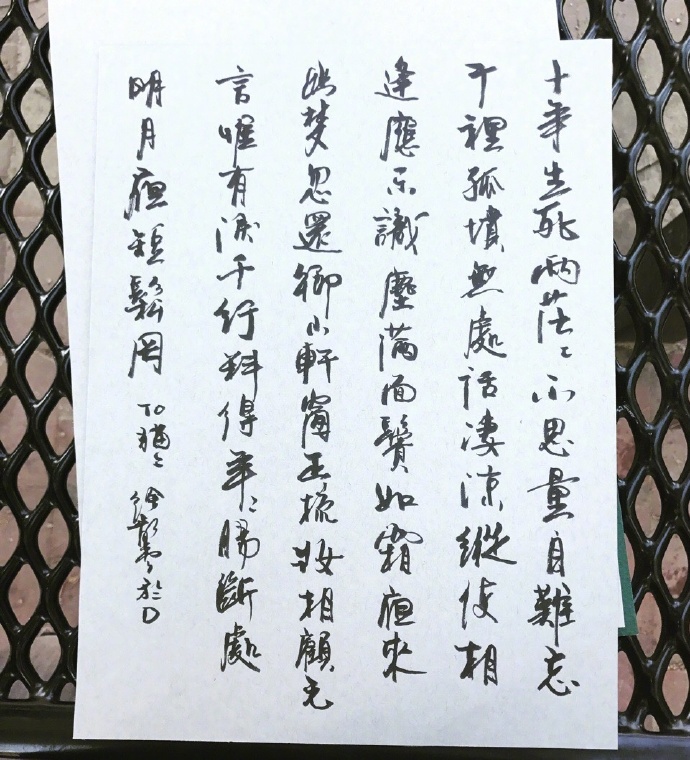 十年生死兩茫〻不思量自難忘
千裡孤墳無處話淒涼縱使相
逢應不識塵滿面鬢如霜夜來
幽夢忽還鄉小軒窗正梳妝相顧无
言唯有淚千行料得年〻腸斷處
明月夜短鬆岡 TO 貓〻 於D